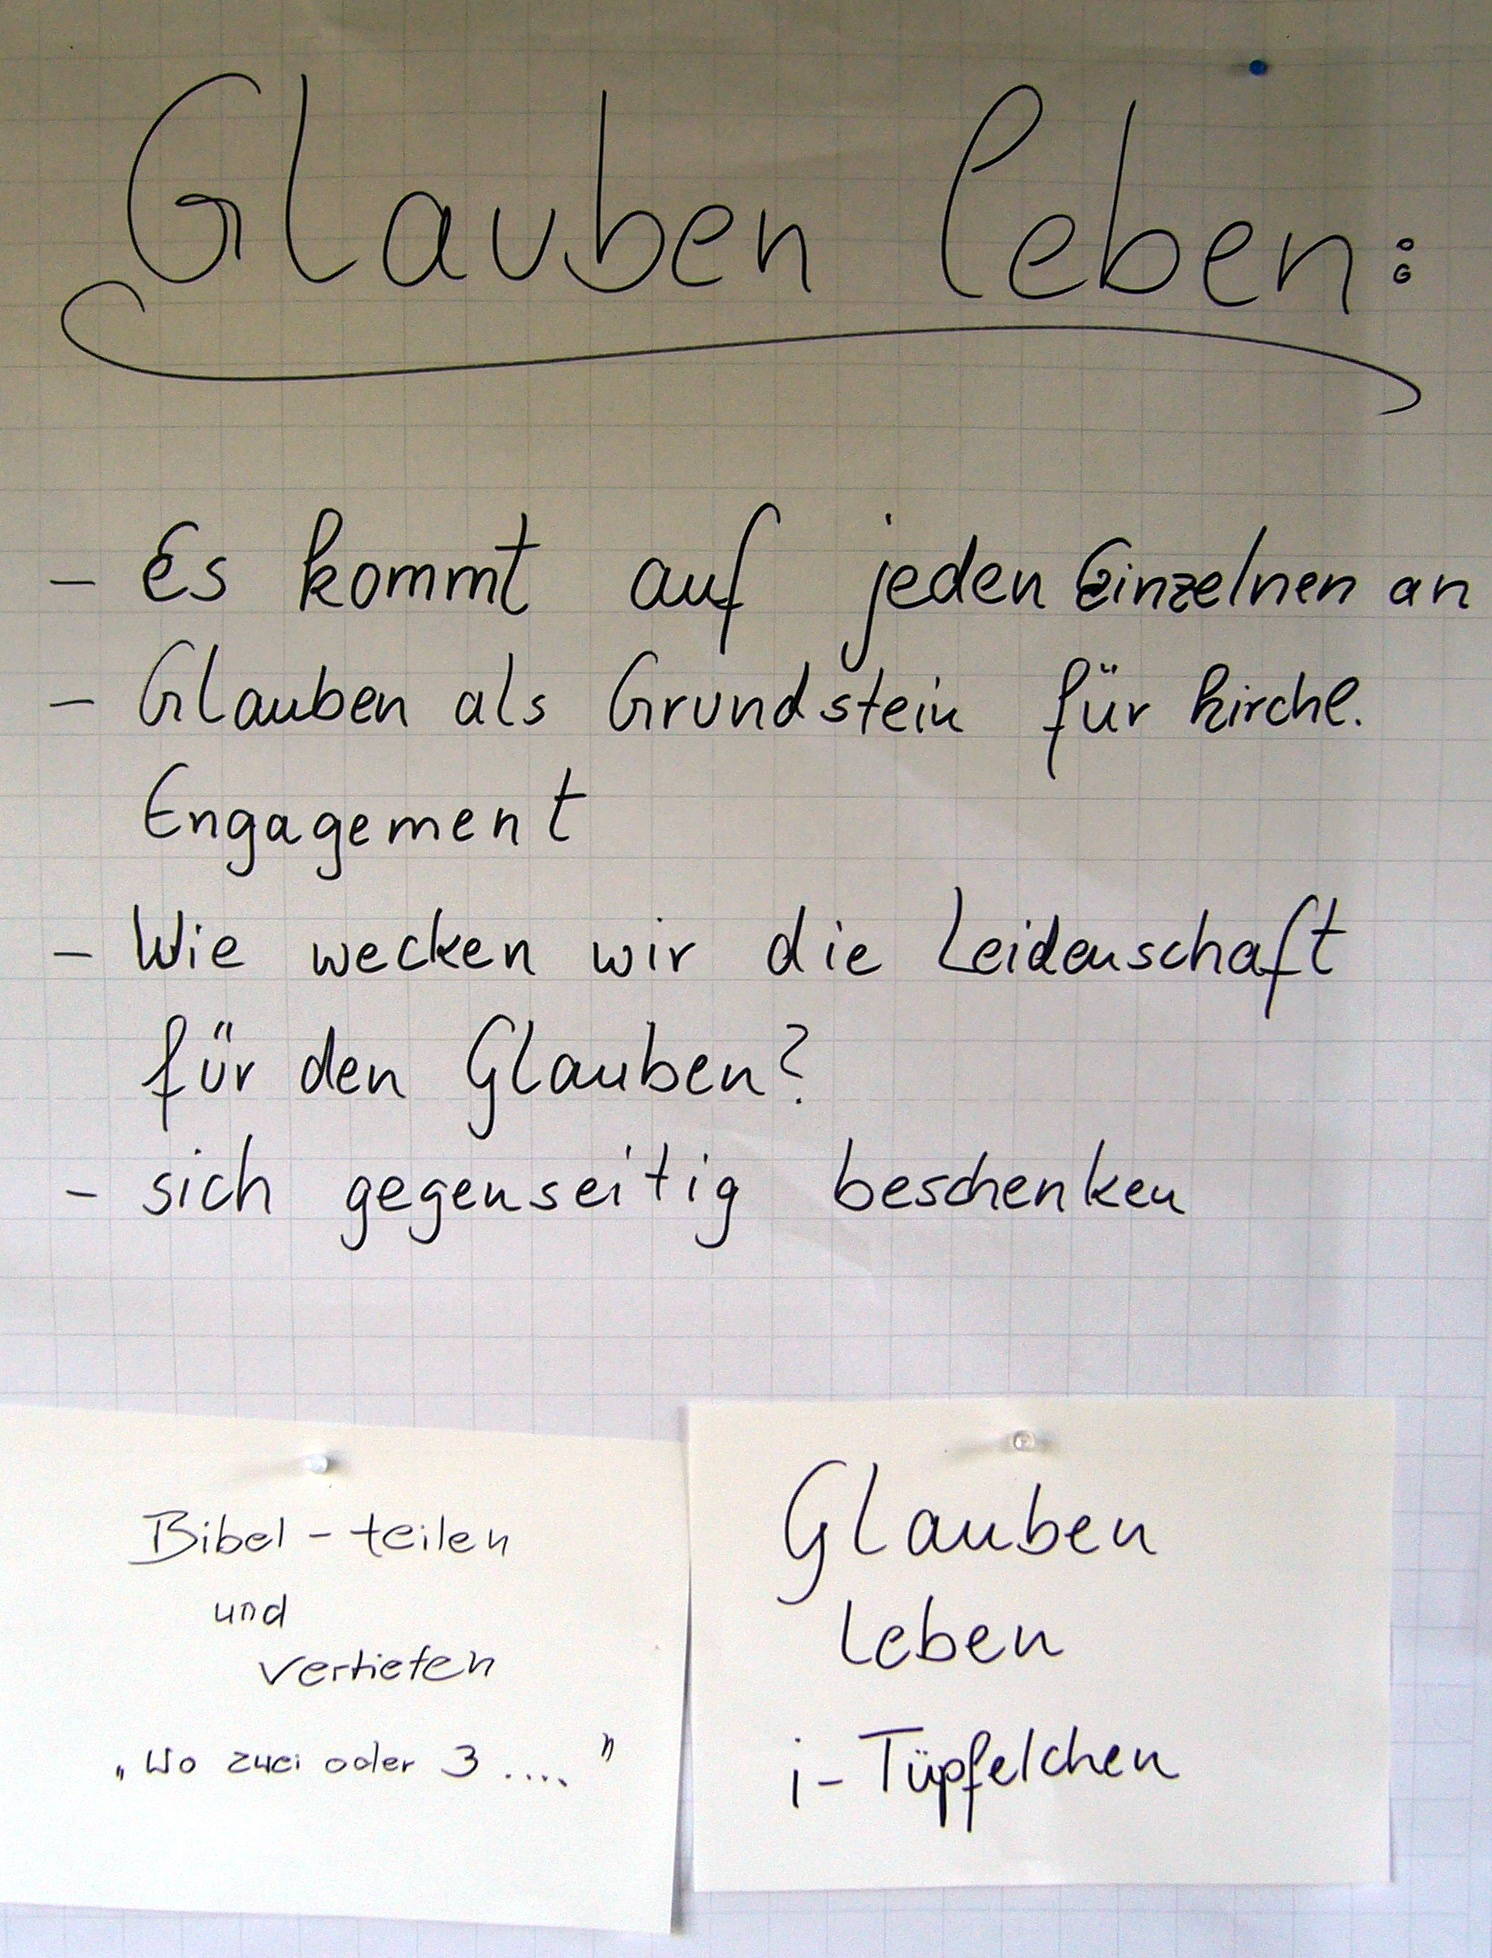 Glauben leben:
- Es kommt auf jeden Einzelnen an
- Glauben als Grundstein für kirchl.
Engagement
- Wie wecken wir die Leidenschaft
für den Glauben?
- sich gegenseitig beschenken
Bibel-teilen
und
vertiefen
„Wo zwei oder 3 ...."
Glauben
leben
i-Tüpfelchen